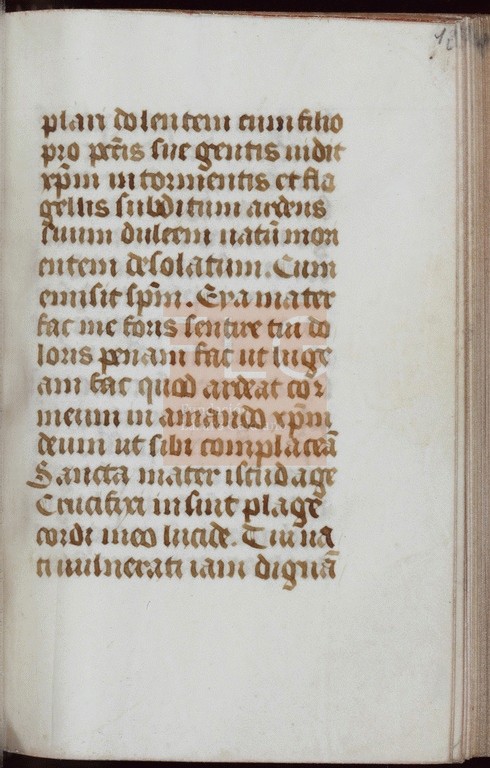 plari dolentem cum filio
pro pctis sue gentis uidit
xpm in tormentis et fla
gellis subditum ardens
suum dulcem natū mori
entem desolatum. Cum
emisit spm. Eya mater
fac me foris sentire tui do
loris penam fac ut luge
am fac quod ardeat cor
meum in amando xpm
deum ut sibi complaceā
Sancta mater istud age
Crucifixi in sint plage
cordi meo lucide. Tui na
ti uulnerati iam dignā